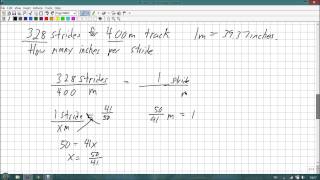 328 strides for 400m track 1m = 39.37 inches.
How many inches per stride
328 strides = 1 stride
400 m m
1 stride = 41
x m 50
50 m = 1
41
50 = 41x
x = 50
41